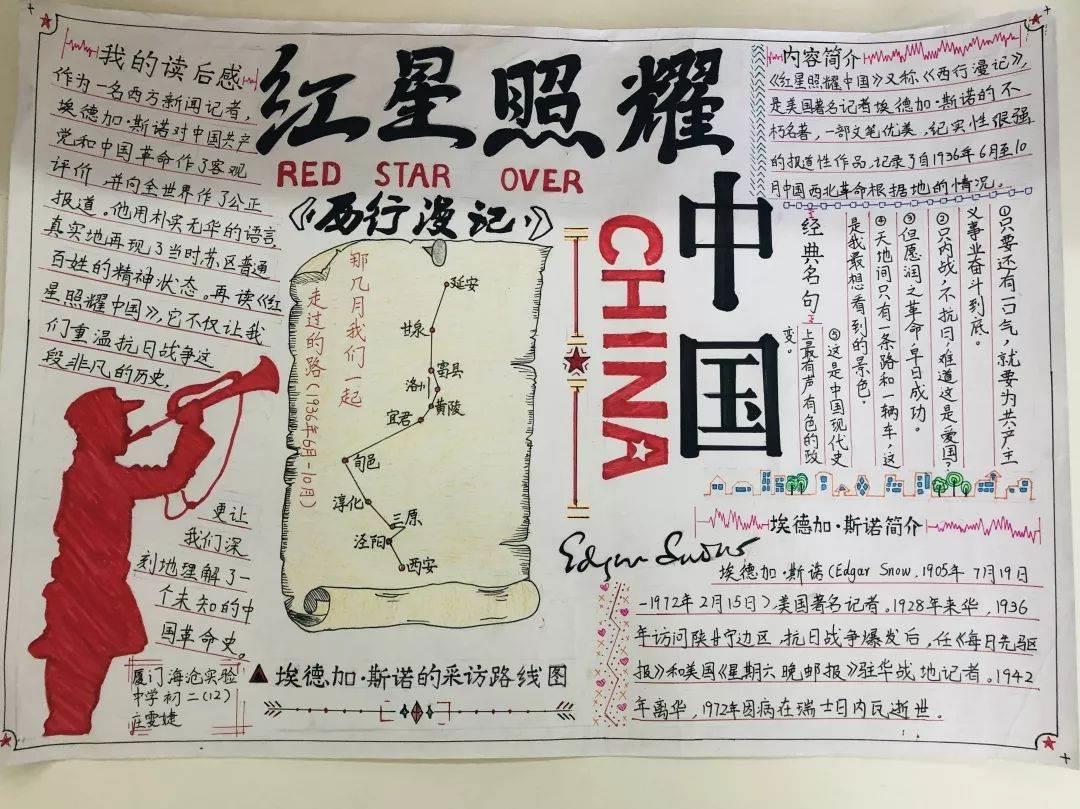 我的读后感
作为一名西方新闻记者,
埃德加·斯诺对中国共产
党和中国革命作了客观
评价,并向全世界作了公正
报道。他用朴实无华的语言
真实地再现了当时苏区普通
百姓的精神状态。再读《红
星照耀中国》,它不仅让我
们重温抗日战争这
段非凡的历史,
更让
我们深
刻地理解了一
个未知的中
国革命史。
厦门海沧实验
中学初二(12)
庄雯婕
红星照耀
中国
RED STAR OVER
CHINA
《西行漫记》
那几月我们一起
走过的路(1936年6月-10月)
延安
甘泉
富县
洛川
黄陵
宜君
旬邑
淳化
三原
泾阳
西安
埃德加·斯诺的采访路线图
内容简介
《红星照耀中国》又称《西行漫记》,
是美国著名记者埃德加·斯诺的不
朽名著,一部文笔优美,纪实性很强
的报道性作品,记录了自1936年6月至10
月中国西北革命根据地的情况。
①只要还有一口气,就要为共产主
义事业奋斗到底。
②只内战,不抗日,难道这是爱国?
③但愿润之革命,早日成功。
④天地间只有一条路和一辆车,这
是我最想看到的景色。
经典名句:
⑤这是中国现代史
上最有声有色的改
变。
埃德加·斯诺简介
Edgar Snow
埃德加·斯诺(Edgar Snow,1905年7月19日
-1972年2月15日)美国著名记者。1928年来华,1936
年访问陕甘宁边区,抗日战争爆发后,任《每日先驱
报》和美国《星期六晚邮报》驻华战地记者。1942
年离华,1972年因病在瑞士日内瓦逝世。